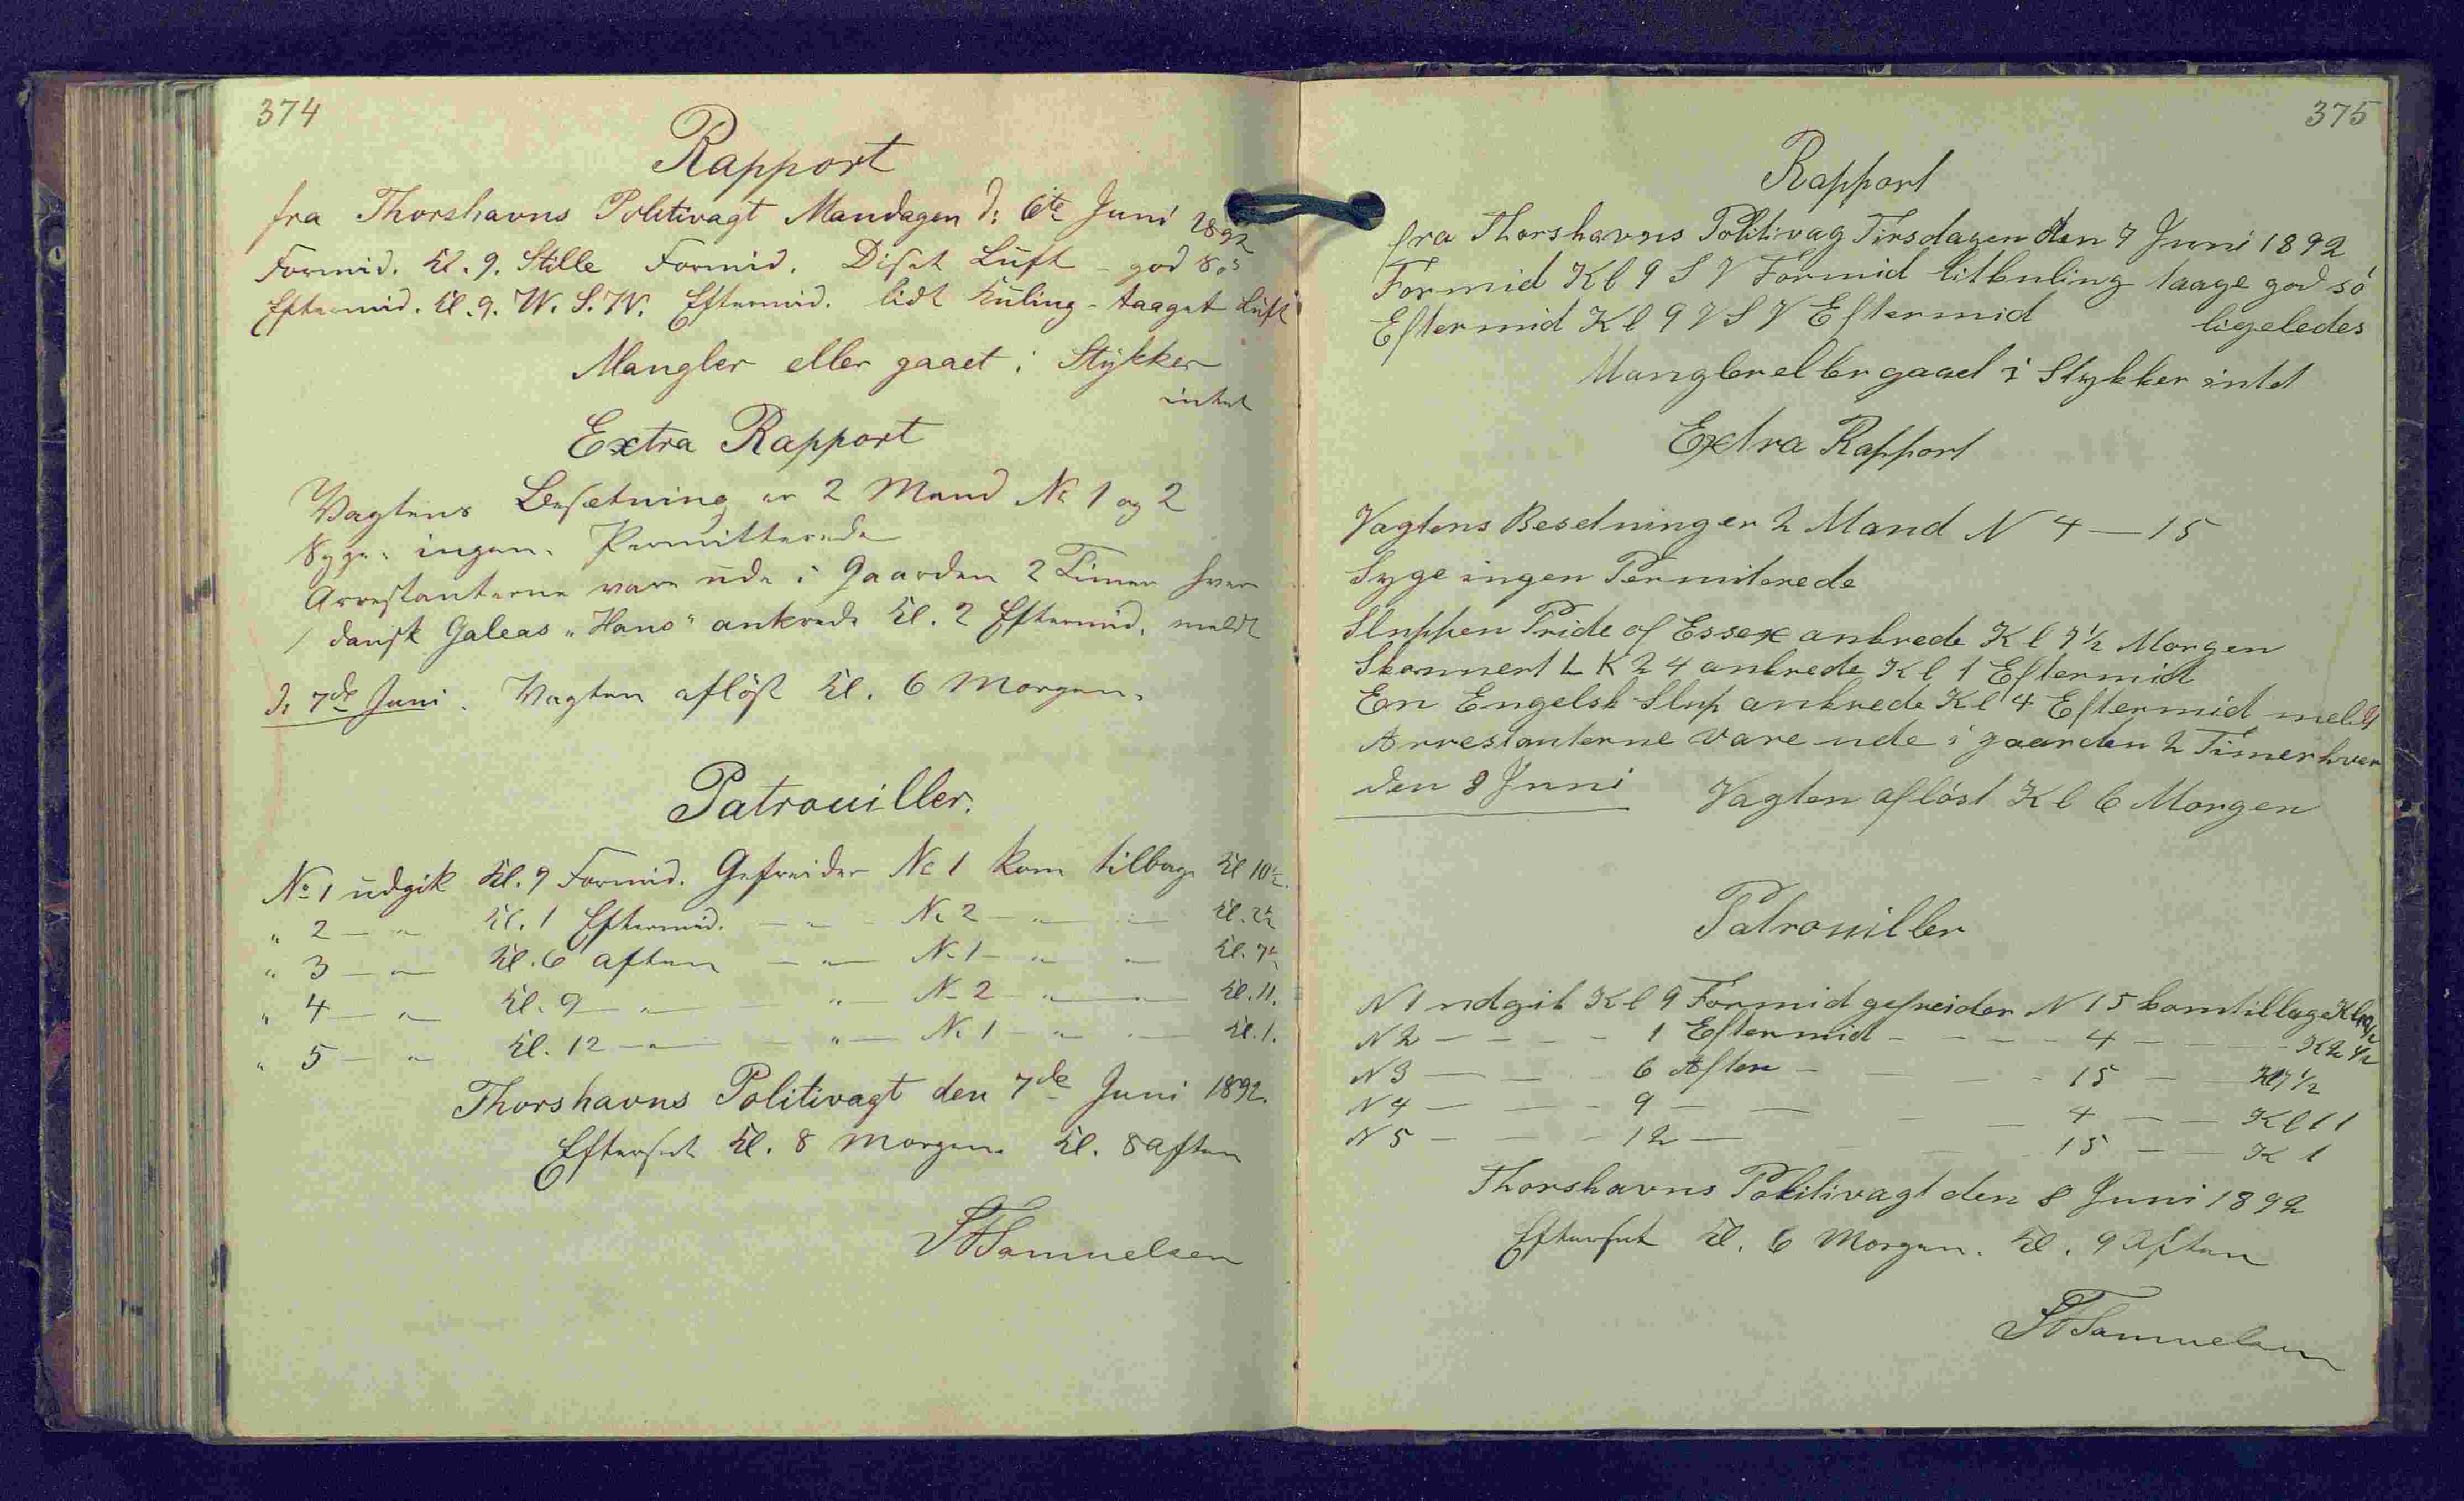 374
Rapport
fra Thorshavns Politivagt Mandagen d: 6te Juni 1892
Formid. Kl. 9. Stille Formid. Diset Luft - god Sø
Eftermid. Kl. 9. W. S. W. Eftermid. lidt Kuling - taaget Luft
Mangler eller gaaet i Stykker
intet
Extra Rapport
Vagtens Besætning er 2 Mand No 1 og 2
Syge: ingen. Permitterede
Arrestanterne vare ude i Gaarden 2 Timer hver
/ dansk Galeas "Hans" ankrede Kl. 2 Eftermid. meldt
d: 7de Juni. Vagten afløst Kl. 6 Morgen.
Patrouiller.
No 1 udgik Kl. 9 Formid. Gefreider No 1 kom tilbage Kl 10½.
" 2 — " Kl. 1 Eftermid. — " — No 2 — " — Kl. 2½
" 3 — " — Kl. 6 aften — " — No 1 — " — Kl. 7½
" 4 — " — Kl. 9 — " — " — No 2 — " — Kl. 11.
" 5 — " Kl. 12 — " — " — No 1 — " — Kl. 1.
Thorshavns Politivagt den 7de Juni 1892.
Efterset Kl. 8 Morgen. Kl. 8 Aften
Samuelsen
375
Rapport
fra Thorshavns Politivag Tirsdagen den 7 Juni 1892
Formid Kl 9 S V Formid litkuling taage god sö
Eftermid Kl 9 V S V Eftermid ligeledes
Mangler eller gaaet i Stykker intet
Extra Rapport
Vagtens Besetning er 2 Mand N 4 — 15
Syge ingen Permiterede
Sluppen Pride of Essex ankrede Kl 7½ Morgen
Skonnert L K 24 ankrede Kl 1 Eftermid
En Engelsk Slup ankrede Kl 4 Eftermid meldt
Arrestanterne vare ude i gaarden 2 Timer hver
den 8 Juni Vagten afløst Kl 6 Morgen
Patrouiller
N 1 udgik Kl 9 Formid gefreider N 15 kom tilbage Kl 10½
N 2 — — — — 1 Eftermid — — — — 4 — — — K 2 ½
N 3 — — — 6 Aften — — — 15 — Kl 7 ½
N 4 — — — 9 — — — — 4 — — Kl 11
N 5 — — — 12 — — — 15 — — K 1
Thorshavns Politivagt den 8 Juni 1892
Efterset Kl. 6 Morgen. Kl. 9 Aften
Samuelsen